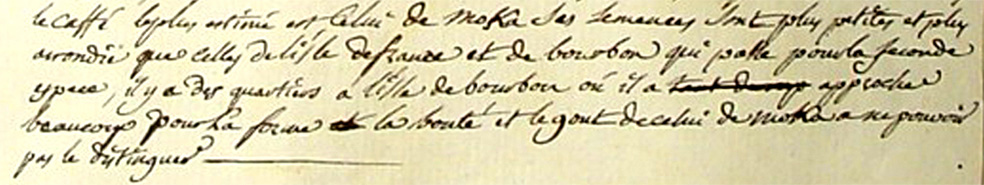 le caffé le plus estimé est Celui de moka Ses Semences Sont plus petites et plus
arrondie que celles de l'isle de france et de bourbon qui passe pour la seconde
espece, il y a des quartiers a l'isle de bourbon ou il a approché
beaucoup pour la forme la bonté et le gout de celui de moka a ne pouvoir
pas le distinguer